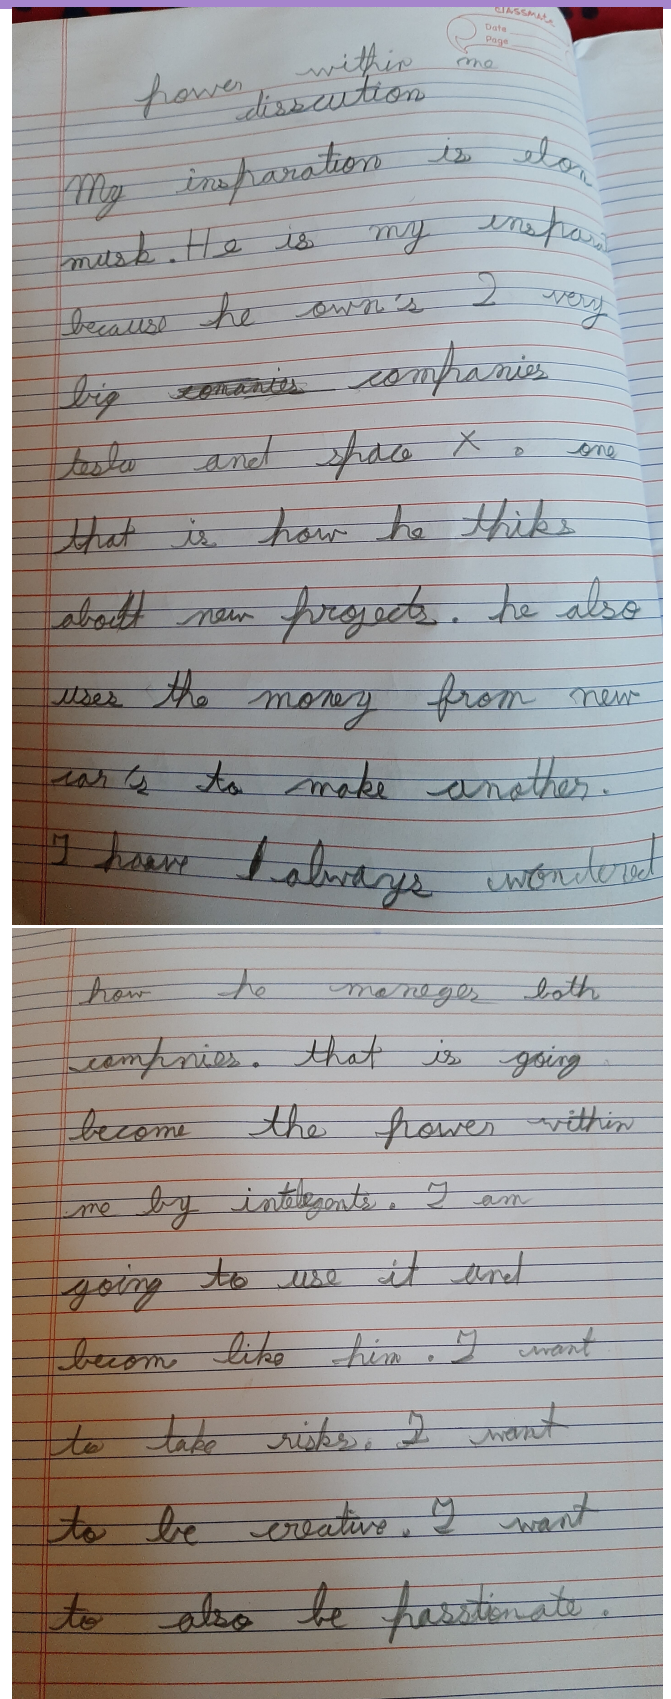 CLASSMATE
Date
Page
power within me
disscution
My insparation is elon
musk. He is my inspara
because he own's 2 very
big comanies companies
tesla and space X. one
that is how he thiks
about new projects. he also
uses the money from new
car's to make another.
I have always wondered
how he maneges both
compnies. that is going
become the power within
me by intelegents. I am
going to use it and
becom like him. I want
to take risks. I want
to be creative. I want
to also be passtionate.